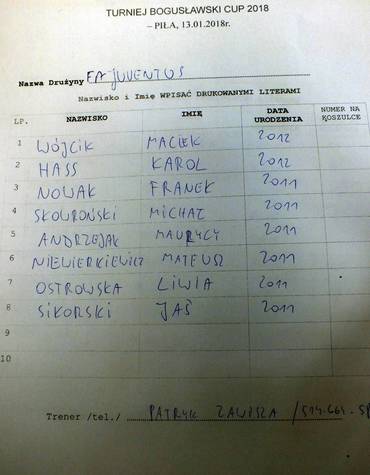 TURNIEJ BOGUSŁAWSKI CUP 2018
– PIŁA, 13.01.2018r.
Nazwa Drużyny FA JUVENTUS
Nazwisko i Imię WPISAĆ DRUKOWANYMI LITERAMI
LP. NAZWISKO IMIĘ DATA URODZENIA NUMER NA KOSZULCE
1 WÓJCIK MACIEK 2012
2 HASS KAROL 2012
3 NOWAK FRANEK 2011
4 SKOWROŃSKI MICHAŁ 2011
5 ANDRZEJAK MAURYCY 2011
6 NIEWIERKIEWICZ MATEUSZ 2011
7 OSTROWSKA LIWIA 2011
8 SIKORSKI JAŚ 2011
9
10
Trener /tel./ PATRYK ZAWISZA /514-664-